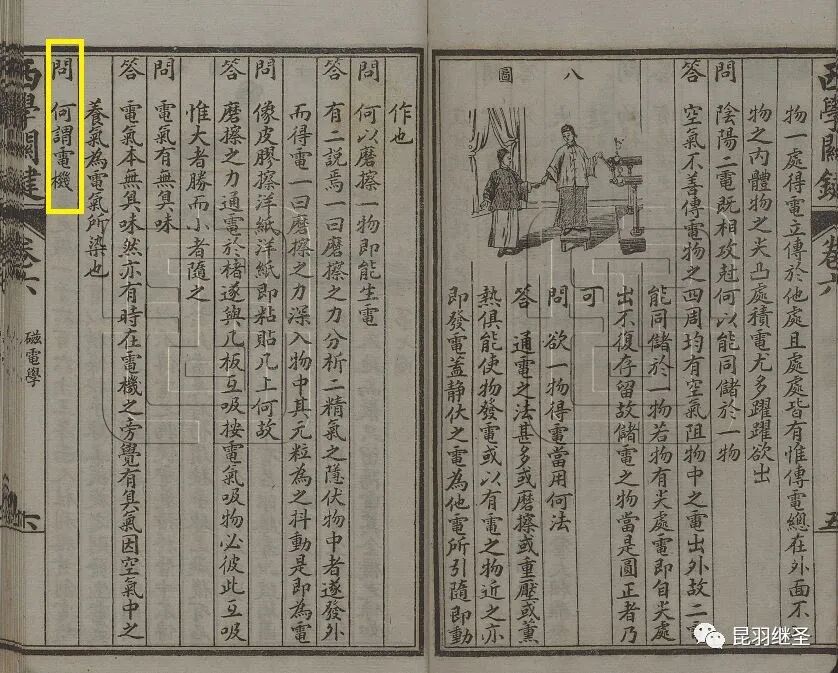 西學關鍵
卷六
五
物一處得電立傳於他處且處處皆有惟傳電總在外面不
物之内體物之尖凸處積電尤多躍躍欲出
問 陰陽二電既相攻尅何以能同儲於一物
答 空氣不善傳電物之四周均有空氣阻物中之電出外故二電
能同儲於一物若物有尖處電即自尖處
出不復存留故儲電之物當是圓正者乃
可
問 欲一物得電當用何法
答 通電之法甚多或磨擦或重壓或薰
熱俱能使物發電或以有電之物近之亦
即發電蓋静伏之電為他電所引隨即動
八圖
作也
問 何以磨擦一物即能生電
答 有二說焉一曰磨擦之力分析二精氣之隱伏物中者遂發外
而得電一曰磨擦之力深入物中其元粒為之抖動是即為電
問 像皮膠擦洋紙洋紙即粘貼几上何故
答 磨擦之力通電於楮遂與几板互吸按電氣吸物必彼此互吸
惟大者勝而小者隨之
問 電氣有無臭味
答 電氣本無臭味然亦有時在電機之旁覺有臭氣因空氣中之
養氣為電氣所染也
問 何謂電機
西學關鍵
卷六
磁電學
六
昆羽继圣